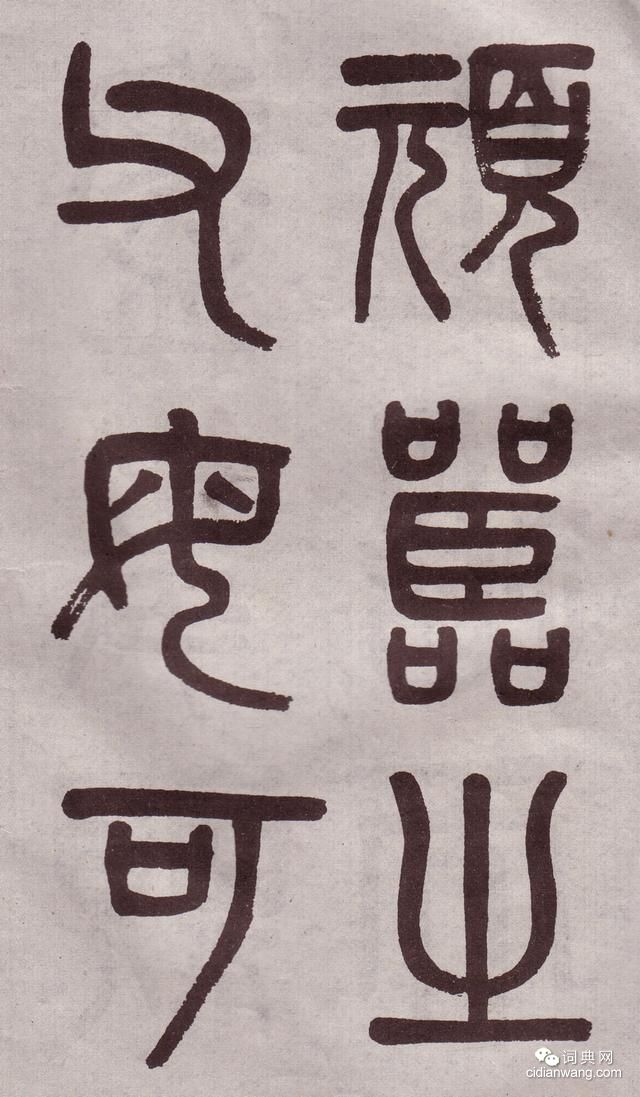 頑嚚之
父母可
词典网
cidianwang.com